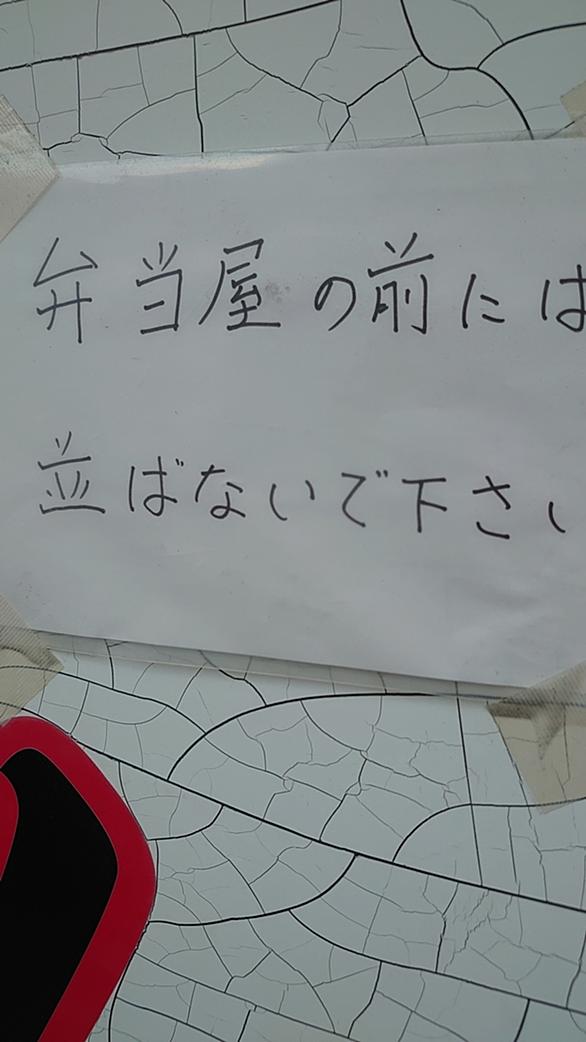 弁当屋の前には
並ばないで下さい